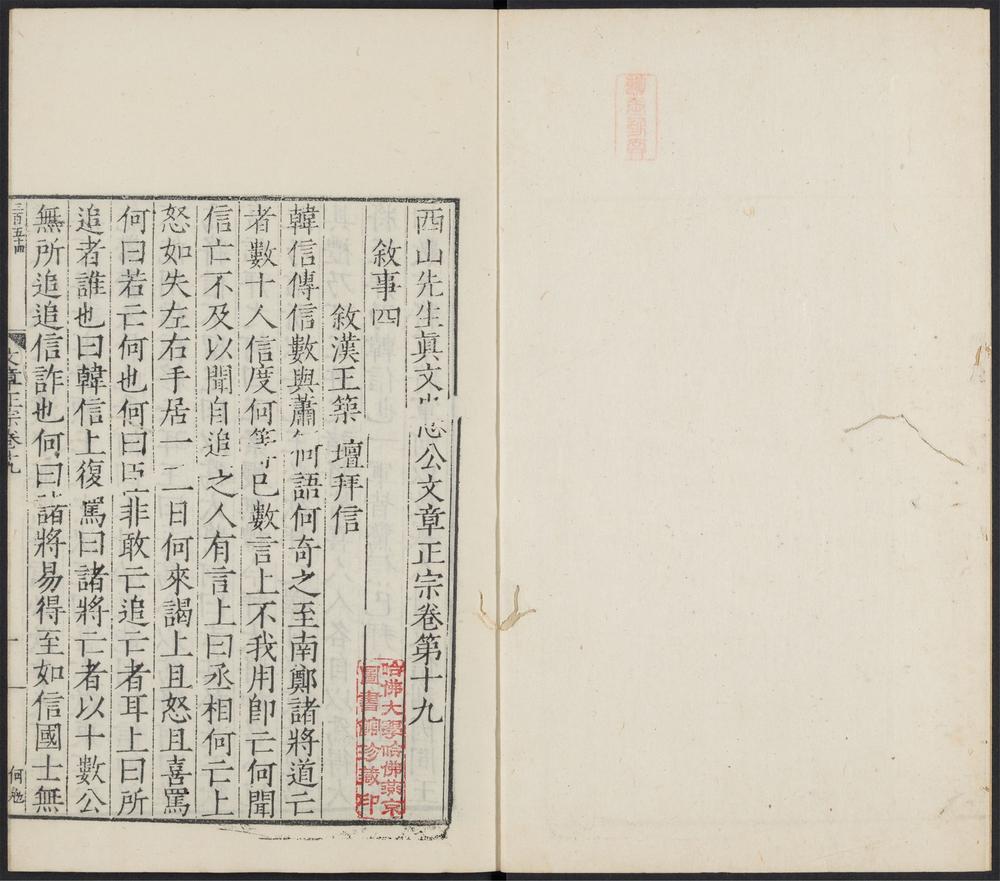 西山先生眞文忠公文章正宗卷第十九
敘事四
敘漢王築壇拜信
韓信傳信數與蕭何語何奇之至南鄭諸將道亡
者數十人信度何等已數言上不我用卽亡何聞
信亡不及以聞自追之人有言上曰丞相何亡上
怒如失左右手居一二日何來謁上且怒且喜罵
何曰若亡何也何曰臣非敢亡追亡者耳上曰所
追者誰也曰韓信上復罵曰諸將亡者以十數公
無所追追信詐也何曰諸將易得至如信國士無
三百五十四
文章正宗卷十九
一
何
哈佛大學哈佛燕京
圖書館珍藏印